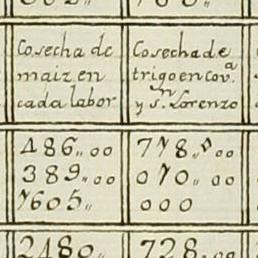 Cosecha de
maiz en
cada labor
Cosecha de
trigo en Cov.ª
y S.n Lorenzo
486,,00
389,,00
7605,,
778,,00
070,,00
000
2480,,
728,,00